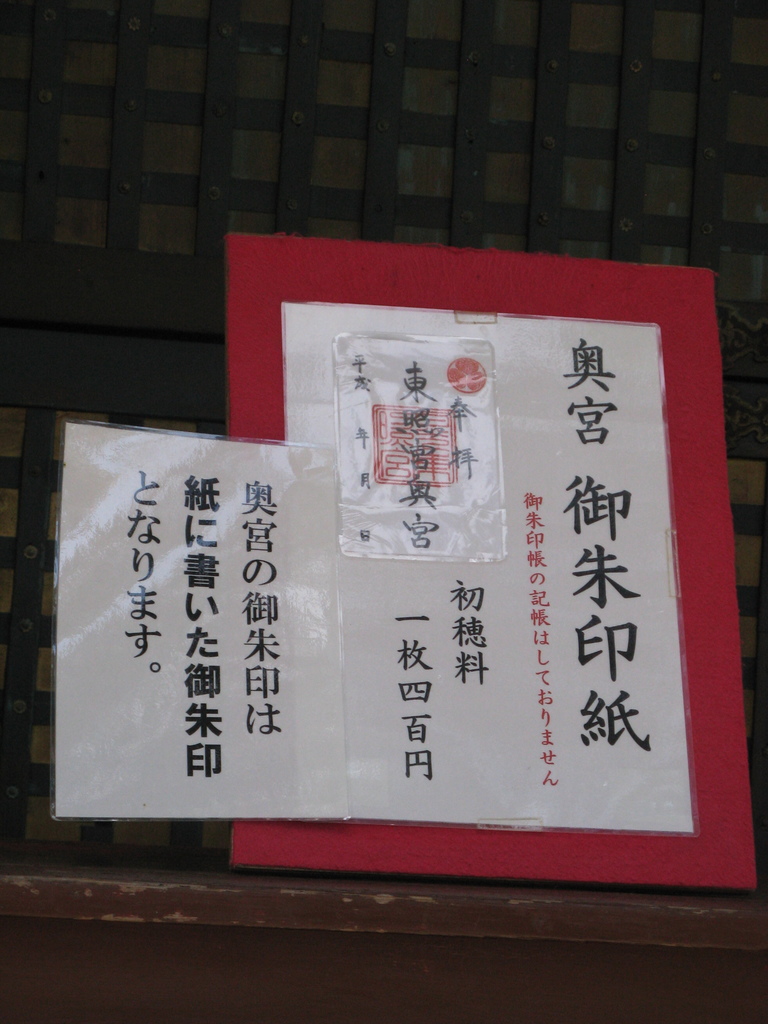 奥宮 御朱印紙
御朱印帳の記帳はしておりません
奉拝
東照宮奥宮
平成 年 月 日
初穂料
一枚四百円
奥宮の御朱印は
紙に書いた御朱印
となります。